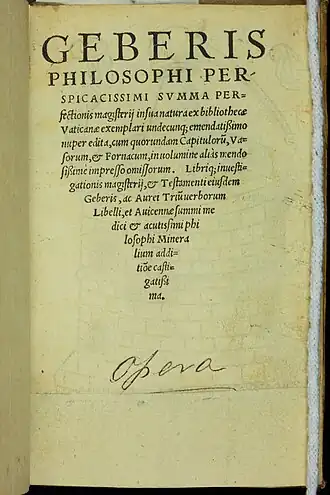 GEBERIS
PHILOSOPHI PER-
SPICACISSIMI SVMMA PER=
fectionis magisterij in sua natura ex bibliothecæ
Vaticanæ exemplari undecunq; emendatißimo
nuper edita, cum quorundam Capitulorũ, Va-
sorum, & Fornacum, in uolumine aliàs mendo
sißime impresso omissorum. Libriq; inuesti-
gationis magisterij, & Testamenti eiusdem
Geberis, ac Aurei Triũ uerborum
Libelli, et Auicennæ summi me
dici & acutissimi phi
losophi Minera
lium addi-
tiõe casti-
gatißi
ma.
Opera